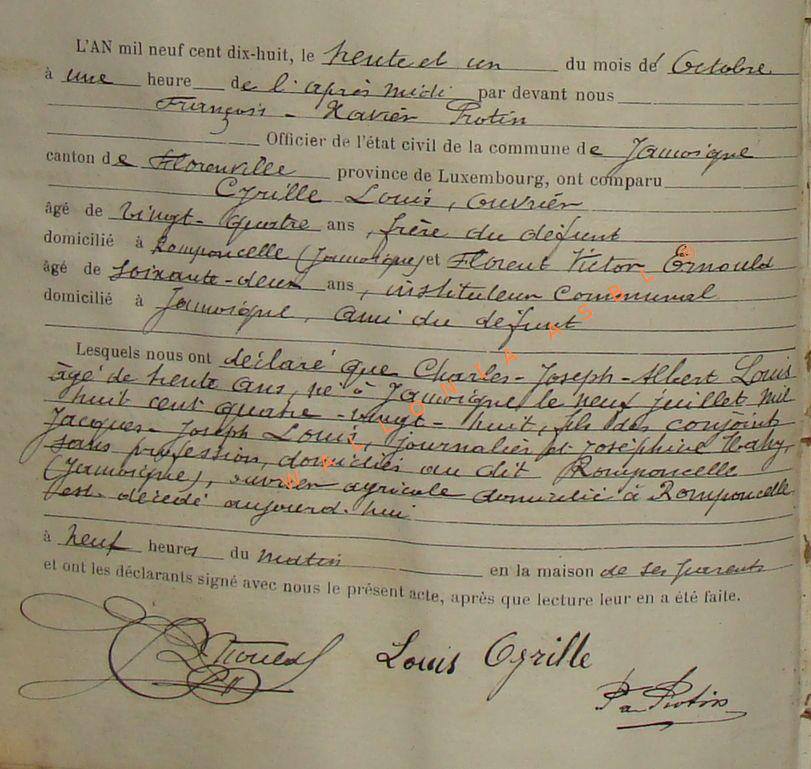 L'AN mil neuf cent dix-huit, le trente et un du mois de Octobre
à une heure de l'après midi par devant nous
François - Xavier Protin
Officier de l'état civil de la commune de Jamoigne
canton de Florenville province de Luxembourg, ont comparu
Cyrille Louis, ouvrier
âgé de vingt-quatre ans, frère du défunt
domicilié à Romponcelle (Jamoigne) et Florent Victor Ernould
âgé de soixante-deux ans, instituteur communal
domicilié à Jamoigne, ami du défunt
Lesquels nous ont déclaré que Charles-Joseph-Albert Louis
âgé de trente ans, né à Jamoigne le neuf juillet mil
huit cent quatre-vingt-huit, fils des conjoints
Jacques-Joseph Louis, journalier et Joséphine
sans profession, domiciliés au dit Romponcelle
(Jamoigne), ouvrier agricole domicilié à Romponcelle
est décédé aujourd'hui
à neuf heures du matin en la maison de ses parents
et ont les déclarants signé avec nous le présent acte, après que lecture leur en a été faite.
Louis Cyrille
Protin
WALLONIA ASBL ©